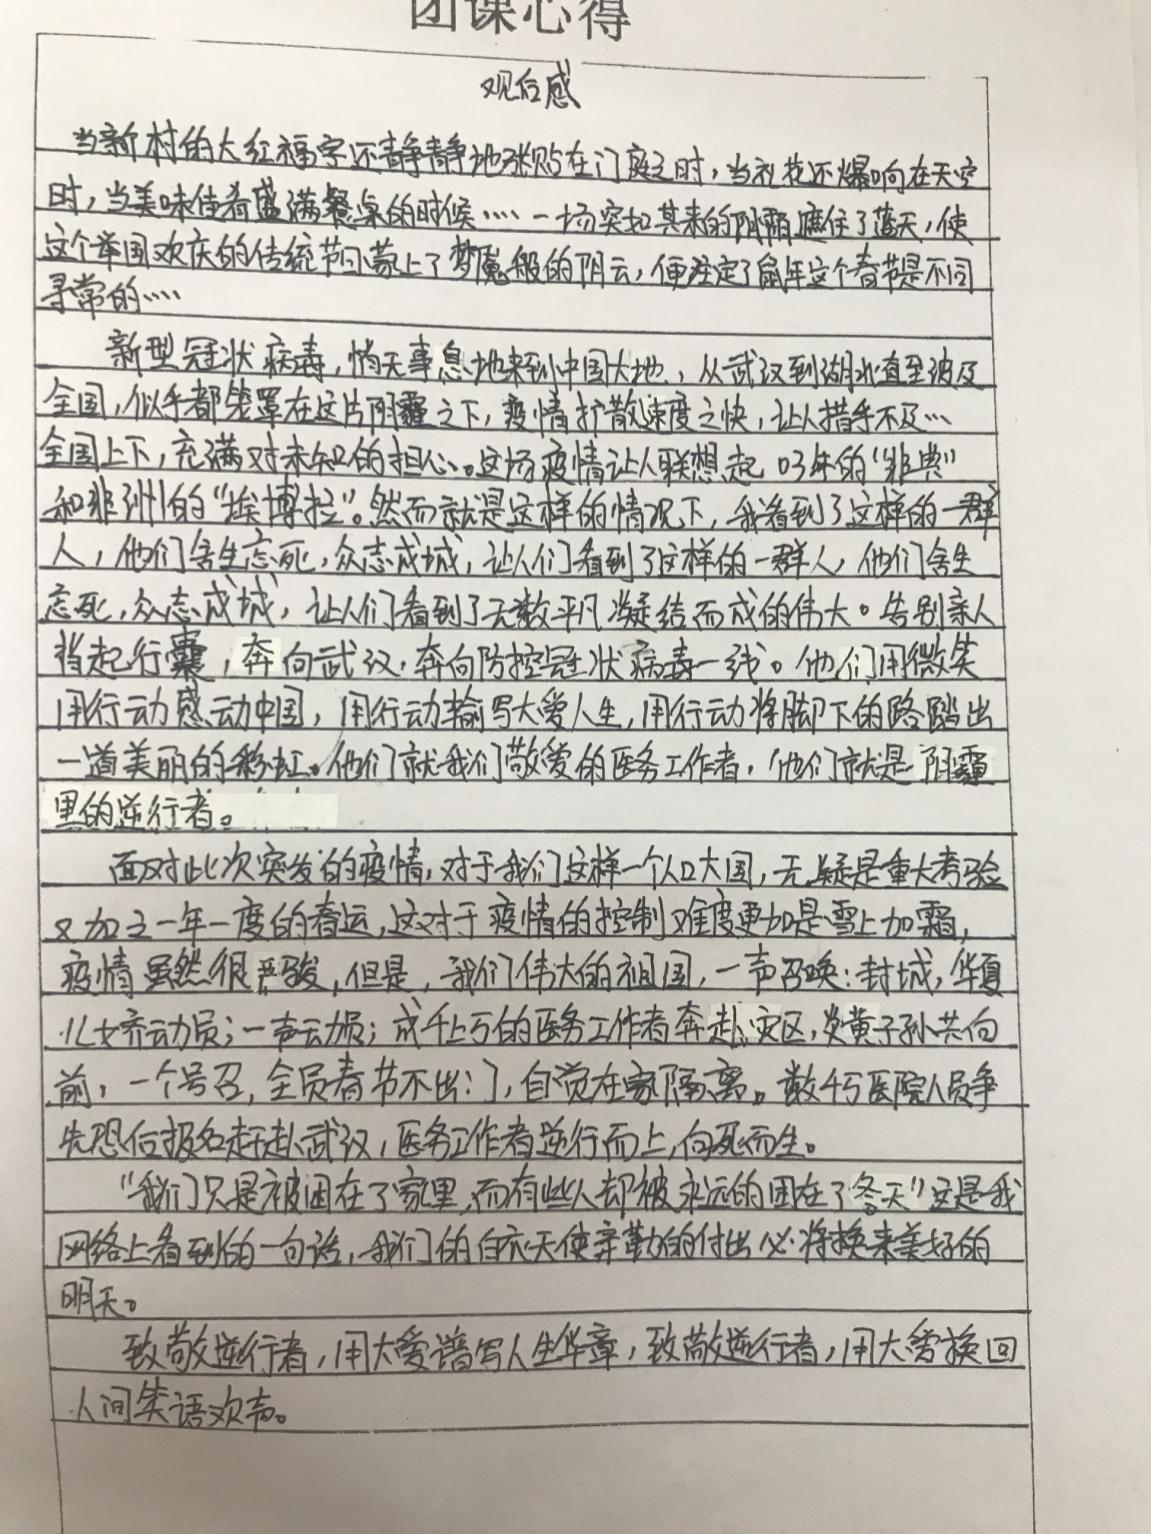 团课心得
观后感
当新村的大红福字还静静地张贴在门庭之时，当礼花还爆响在天空
时，当美味佳肴盛满餐桌的时候……一场突如其来的阴霾遮住了蓝天，使
这个举国欢庆的传统节日蒙上了梦魇般的阴云，便注定了鼠年这个春节是不同
寻常的……
新型冠状病毒，悄无事息地来到中国大地，从武汉到湖北直至波及
全国，似乎都笼罩在这片阴霾之下，疫情扩散速度之快，让人措手不及…
全国上下，充满对未知的担心。这场疫情让人联想起03年的“非典”
和非洲的“埃博拉”。然而就是这样的情况下，我看到了这样的一群
人，他们舍生忘死，众志成城，让人们看到了这样的一群人，他们舍生
忘死，众志成城，让人们看到了无数平凡凝结而成的伟大。告别亲人
背起行囊，奔向武汉，奔向防控冠状病毒一线。他们用微笑
用行动感动中国，用行动输写大爱人生，用行动将脚下的路踏出
一道美丽的彩虹。他们就我们敬爱的医务工作者，他们就是阴霾
里的逆行者。
面对此次突发的疫情，对于我们这样一个人口大国，无疑是重大考验
又加之一年一度的春运，这对于疫情的控制难度更加是雪上加霜，
疫情虽然很严峻，但是，我们伟大的祖国，一声召唤：封城，华夏
儿女齐动员；一声动员；成千上万的医务工作者奔赴灾区，炎黄子孙共向
前，一个号召，全员春节不出门，自觉在家隔离。数千万医院人员争
先恐后报名赶赴武汉，医务工作者逆行而上，向死而生。
“我们只是被困在了家里，而有些人却被永远的困在了冬天”这是我
网络上看到的一句话，我们的白衣天使辛勤的付出必将换来美好的
明天。
致敬逆行者，用大爱谱写人生华章，致敬逆行者，用大爱换回
人间笑语欢声。